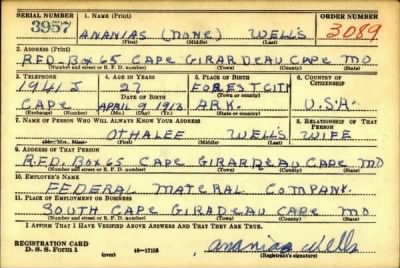 SERIAL NUMBER 1. NAME (Print) ORDER NUMBER
3957 ANANIAS (NONE) WELLS 3089
(First) (Middle) (Last)
2. ADDRESS (Print)
RFD-BOX 65 CAPE GIRARDEAU CAPE MO
(Number and street or R. F. D. number) (Town) (County) (State)
3. TELEPHONE 4. AGE IN YEARS 5. PLACE OF BIRTH 6. COUNTRY OF CITIZENSHIP
1941 J 27 FOREST CITY
DATE OF BIRTH (Town or county)
CAPE APRIL 9 1913 ARK. U.S.A.
(Exchange) (Mo.) (Day) (Yr.) (State or country)
7. NAME OF PERSON WHO WILL ALWAYS KNOW YOUR ADDRESS 8. RELATIONSHIP OF THAT PERSON
OTHALEE WELLS WIFE
(Mr., Mrs., Miss) (First) (Middle) (Last)
9. ADDRESS OF THAT PERSON
R.F.D. BOX 65 CAPE GIRARDEAU CAPE MO
(Number and street or R. F. D. number) (Town) (County) (State)
10. EMPLOYER'S NAME
FEDERAL MATERAL COMPANY.
11. PLACE OF EMPLOYMENT OR BUSINESS
SOUTH CAPE GIRADEAU CAPE MO
(Number and street or R. F. D. number) (Town) (County) (State)
I AFFIRM THAT I HAVE VERIFIED ABOVE ANSWERS AND THAT THEY ARE TRUE.
REGISTRATION CARD
D. S. S. Form 1 (over) 16-17105 Ananias Wells
(Registrant's signature)